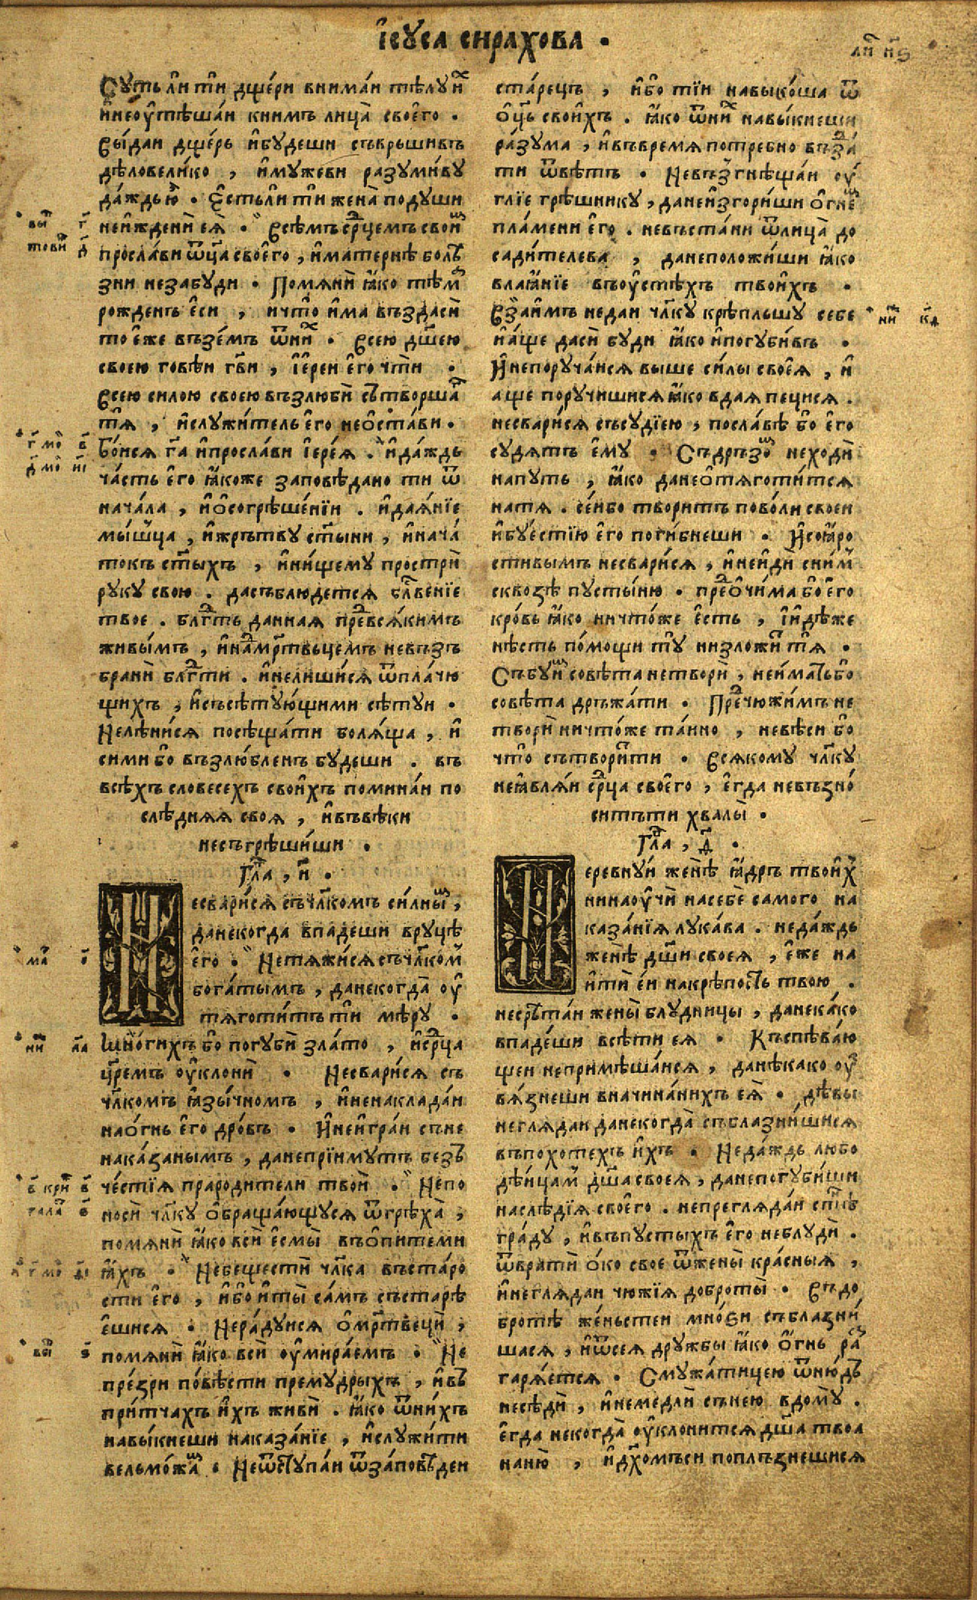 і҆сꙋса сирахова .
Суть ли ти дщери внимаи тѣлу и҆х
и҆неоу҆тѣшаи книмъ лица своего .
Выдаи дщерь и҆будеши съвръшивъ
дѣловелико , и҆мужеви разумиву
даждью . Єстьли ти жена подуши
неижденѝ еѧ . Всѣмъ срⷣцемъ свои
прослави ѿца своего , и҆матернѣ болѣ
зни незабуди . Помѧнѝ ꙗко тѣмⷤ
рожденъ еси , ичто има въздаси
то еже въземъ ѿниⷯ . Всею дш҃ею
своею говѣи гв҃и , і҆ереи его чти .
Всею силою своею възлюбѝ сътворша
тѧ , и҆служитель его неѡстави .
Боисѧ га҃ и҆прослави і҆ереѧ . и҆даждь
часть его ꙗкоже заповѣдано ти ѿ
начала , и҆ѡсогрѣшении . и҆даѧние
мышца , и҆жрътву ст҃ыни , и҆нача
токъ ст҃ыхъ , и҆нищему прострѝ
руку свою . дасъблюдетсѧ блⷭ҇вение
твое . блгⷣть даннаѧ прⷣевсѧкимъ
живымъ , и҆намртвьцемъ невъзъ
бранѝ блгⷣти . и҆нелишисѧ ѿплачю
щихъ , и҆съсѣтующими сѣтуи .
Нелѣнисѧ посѣщати болѧща , и҆
сими бо възлюбленъ будеши . въ
всѣхъ словесехъ своихъ поминаи по
слѣднѧѧ своѧ , и҆въвѣки
несъгрѣшиши .
Глⷡ҇а , и҃ .
Несварисѧ счл҃комъ силныⷨ ,
данекогда впадеши вруцѣ
его . Нетѧжисѧ счл҃комъ
богатымъ , данекогда оу҆
тѧготитъ ти мѣру .
Многихъ бо погубѝ злато , и҆срⷣца
цр҃емъ оу҆клонѝ . Несварисѧ съ
чл҃комъ ꙗзычномъ , и҆ненакладаи
наогнь его дровъ . И҆неиграи съне
наказанымъ , данепріимутъ безъ
честіѧ прародители твои . Непо
носи чл҃ку ѡбращающусѧ ѿгрѣха ,
помѧнѝ ꙗко всѝ есмы въѡпитеми
ꙗхъ . Небещестѝ чл҃ка въстаро
сти его , и҆бо и҆ты самъ състарѣ
ешисѧ . Нерадуисѧ ѡмрⷮвецѝ ,
помѧнѝ ꙗко всѝ оу҆мираемъ . Не
презри повѣсти премудрыхъ , и҆въ
притчахъ ихъ живѝ . ꙗко ѿнихъ
навыкнеши наказаніе , и҆служити
вельможаⷨ . Неѿступаи ѿзаповѣдеи
старецъ , и҆бо тіи навыкоша ѿ
ѡц҃ь своихъ . ꙗко ѿниⷯ навыкнеши
разума , и҆въвремѧ потребно въздⷣа
ти ѿвѣтъ . Невъзгнѣщаи оу҆
гліе грѣшнику , данеизгориши ѡгнеⷨ
пламени его . невъстани ѿлица до
садителева , данеположиши ꙗко
влаꙗніе въоу҆стѣхъ твоихъ .
Взаимъ недаи чл҃ку крѣпльшу себе
и҆аще даси буди ꙗко и҆погубивъ .
И҆непоручаисѧ выше силы своеѧ , и҆
аще поручишисѧ ꙗко вдаѧ пецисѧ .
несварисѧ съсудіею , послабѣ бо его
судѧтъ ему . Съдръзоⷨ неходѝ
напуть , ꙗко данеѡтѧготитсѧ
натѧ . сеибо творитъ поволи своеи
и҆буестію его погибнеши . Иꙗро
стивымъ несварисѧ , и҆неидѝ сниⷨ
сквозѣ пустыню . прⷣеѡчима бо его
кровь ꙗко ничтоже есть , і҆идѣже
нѣсть помощи ту низложи тѧ .
Събуиⷨ совѣта нетворѝ , неимать бо
совѣта дръжати . Прⷣечюжимъ не
творѝ ничтоже таино , невѣси бо
что сътворити . Всѧкому чл҃ку
неꙗвлѧи срⷣца своего , егда невъзно
ситъти хвалы .
Глⷡ҇а , ѳ҃ .
Неревнуи женѣ ꙗдръ твоиⷯ
нинаоу҆чѝ насебе самого на
казаніѧ лукава . недаждь
женѣ дш҃и своеѧ , еже на
ити еи накрѣпость твою .
несрѣтаи жены блудницы , данекако
впадеши всѣти еѧ . Къспѣваю
щеи непримѣшаисѧ , данѣкако оу҆
вѧзнеши вначинанихъ еѧ . дѣвы
неглѧдаи данекогда съблазнишисѧ
въпохотехъ ихъ . Недаждь любо
дѣицамъ дш҃а своеѧ , данепогубиши
наслѣдіѧ своего . непреглѧдаи стⷣнѣ
граду , и҆въпустыхъ его неблудѝ .
ѿвратѝ око свое ѿжены красныѧ ,
и҆неглѧдаи чюжіѧ доброты . Въдо
бротѣ женьстеи мноѕи съблазнѝ
шасѧ , и҆ѿсеѧ дружбы ꙗко ѡгнь раⷥ
гарѧетсѧ . Смужатицею ѿнюдъ
несѣдѝ , и҆немедли сънею вдому .
егда некогда оу҆клонитсѧ дш҃а твоа
наню , и҆дх҃омъси поплъзнешисѧ